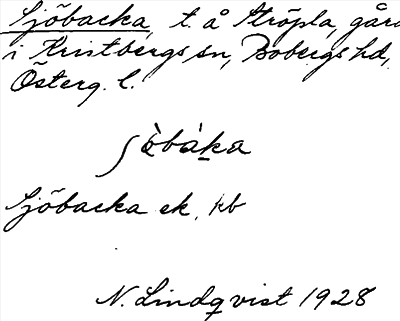 Sjöbacka, t. å Ströpla, gård
i Kristbergs sn, Bobergs hd,
Österg. l.
ʃö̀bàka
Sjöbacka ek, kb
N. Lindqvist 1928